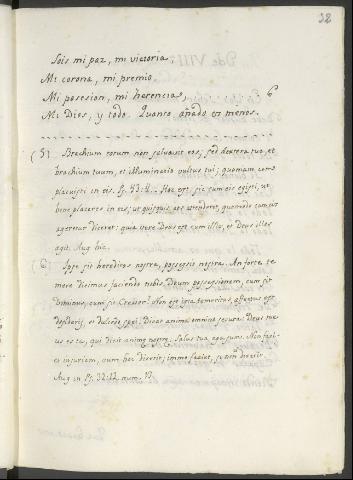 32
Sois mi paz, mi victoria
Mi corona, mi premio
Mi posesion, mi herencia, 6
Mi Dios, y todo. Quanto añado es menos.
(5) Brachium eorum non salvavit eos; sed dextera tua, et
brachium tuum, et illuminatio vultus tui; quoniam com-
placuisti in eis. Ps. 43:4. Hoc est, sic cum eis egisti, ut
bene placeres in eis; ut quisquis eos attenderet, quomodo cum eis
ageretur diceret; quia vere Deus est cum illis, et Deus illos
agit. Aug. hic.
(6) Ipse sit hereditas nostra, possessio nostra. An forte te-
mere dicimus faciendo nobis Deum possessionem, cum sit
Dominus, cum sit Creator? Non est ista temeritas, affectus est
desiderii, et dulcedo spei: Dicat anima omnino secura: Deus me-
us es tu, qui dicit animæ nostræ: Salus tua ego sum. Non faci-
et injuriam, cum hoc dixerit; immo faciet, si non dixerit.
Aug. in Ps. 32:12 num. 17.